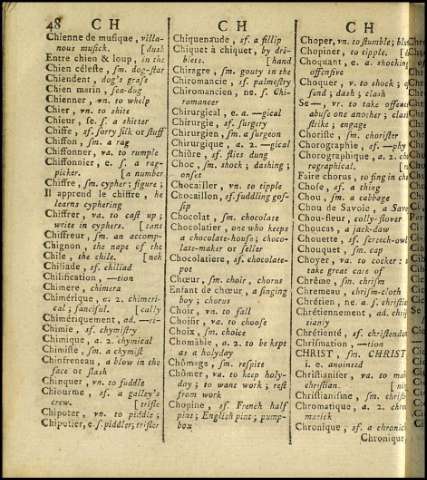 48 C H
Chienne de musique, villa-
nous musick. [dusk
Entre chien & loup, in the
Chien céleste, sm. dog-star
Chiendent, dog's grass
Chien marin, sea-dog
Chienner, vn. to whelp
Chier, vn. to shite
Chieur, se. s. a shitter
Chiffe, sf. sorry silk or stuff
Chiffon, sm. a rag
Chiffonner, va. to rumple
Chiffonnier, e. s. a rag-
picker. [a number
Chiffre, sm. cypher; figure;
Il apprend le chiffre, he
learns cyphering
Chiffrer, va. to cast up;
write in cyphers. [tant
Chiffreur, sm. an accomp-
Chignon, the nape of the
Chile, the chile. [neck
Chiliade, sf. chilliad
Chilification, —tion
Chimere, chimera
Chimérique, a. 2. chimeri-
cal; fanciful. [cally
Chimériquement, ad. —ri-
Chimie, sf. chymistry
Chimique, a. 2. chymical
Chimiste, sm. a chymist
Chinfreneau, a blow in the
face or slash
Chinquer, vn. to fuddle
Chiourme, sf. a galley's
crew. [trifle
Chipoter, vn. to piddle;
Chipotier, e. s. piddler; trifler
C H
Chiquenaude, sf. a fillip
Chiquet à chiquet, by dri-
blets. [hand
Chiragre, sm. gouty in the
Chiromancie, sf. palmestry
Chiromancien, ne. s. Chi-
romancer
Chirurgical, e. a. —gical
Chirurgie, sf. surgery
Chirurgien, sm. a surgeon
Chirurgique, a. 2. —gical
Chière, sf. flies dung
Choc, sm. shock; dashing;
onset
Chocailler, vn. to tipple
Chocaillon, sf. fuddling gos-
sip
Chocolat, sm. chocolate
Chocolatier, one who keeps
a chocolate-house; choco-
late-maker or seller
Chocolatiere, sf. chocolate-
pot
Chœur, sm. choir, chorus
Enfant de chœur, a singing
boy; chorus
Choir, vn. to fall
Choisir, va. to choose
Choix, sm. choice
Chomable, a. 2. to be kept
as a holyday
Chômage, sm. respite
Chômer, va. to keep holy-
day; to want work; rest
from work
Chopine, sf. French half
pint; English pint; pump-
box
C H
Choper, vn. to stumble;
Chopiner, to tipple.
Choquant, e. a. shocking
offensive
Choquer, v. to shock;
fand; dash; clash
Se—, vr. to take offence
abuse one another;
strike; engage
Choriste, sm. chorister
Chorographie, sf. —phy
Chorographique, a. 2. cho-
rographical.
Faire chorus, to sing in
Chose, sf. a thing
Chou, sm. a cabbage
Chou de Savoie, a
Chou-fleur, colly-flower
Choucas, a jack-daw
Chouette, sf. screech-owl
Chouquet, sm. cap
Choyer, va. to cocker:
take great care of
Chrême, sm. chrism
Chremeau, chrism-cloth
Chrétien, ne. a. s. christian
Chrétiennement, ad. chris-
tianly
Chrétienté, sf. christendom
Chrismation, —tion
CHRIST, sm. CHRIST
i. e. anointed
Christianiser, va. to make
christian.
Christianisme, sm.
Chromatique, a. 2. chro-
matick
Chronique, sf. a chronicle
Chronique,